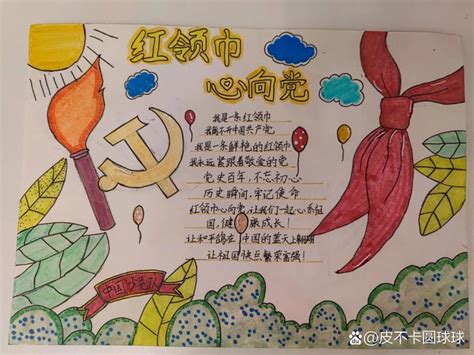 红领巾
心向党
我是一条红领巾
我离不开中国共产党
我是一条鲜艳的红领巾
我永远紧跟着敬爱的党
党史百年，不忘初心
历史瞬间，牢记使命
红领巾心向党，让我们一起心系祖
国，健康成长！
让和平鸽在中国的蓝天上翱翔
让祖国快点繁荣富强！
中国少先队
@皮不卡圆球球